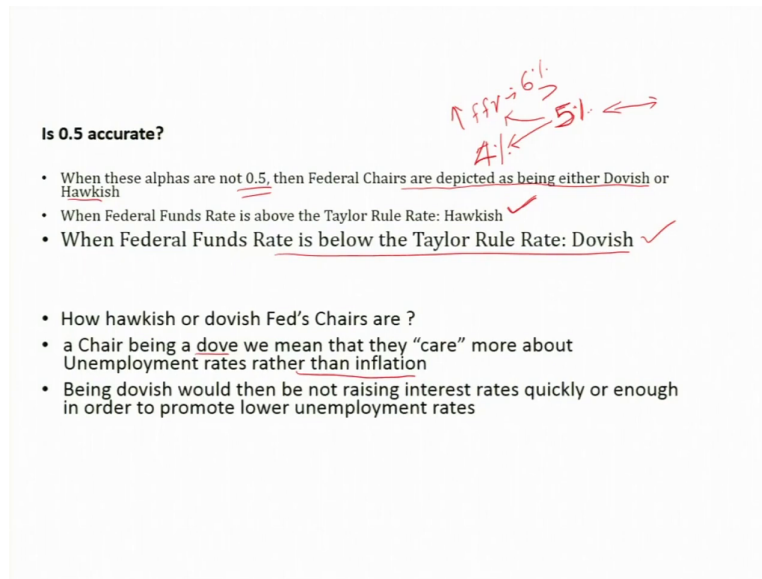 6%
↑ ffr →
5%
4%
Is 0.5 accurate?
• When these alphas are not 0.5, then Federal Chairs are depicted as being either Dovish or
Hawkish
• When Federal Funds Rate is above the Taylor Rule Rate: Hawkish
• When Federal Funds Rate is below the Taylor Rule Rate: Dovish
• How hawkish or dovish Fed's Chairs are ?
• a Chair being a dove we mean that they “care” more about
Unemployment rates rather than inflation
• Being dovish would then be not raising interest rates quickly or enough
in order to promote lower unemployment rates